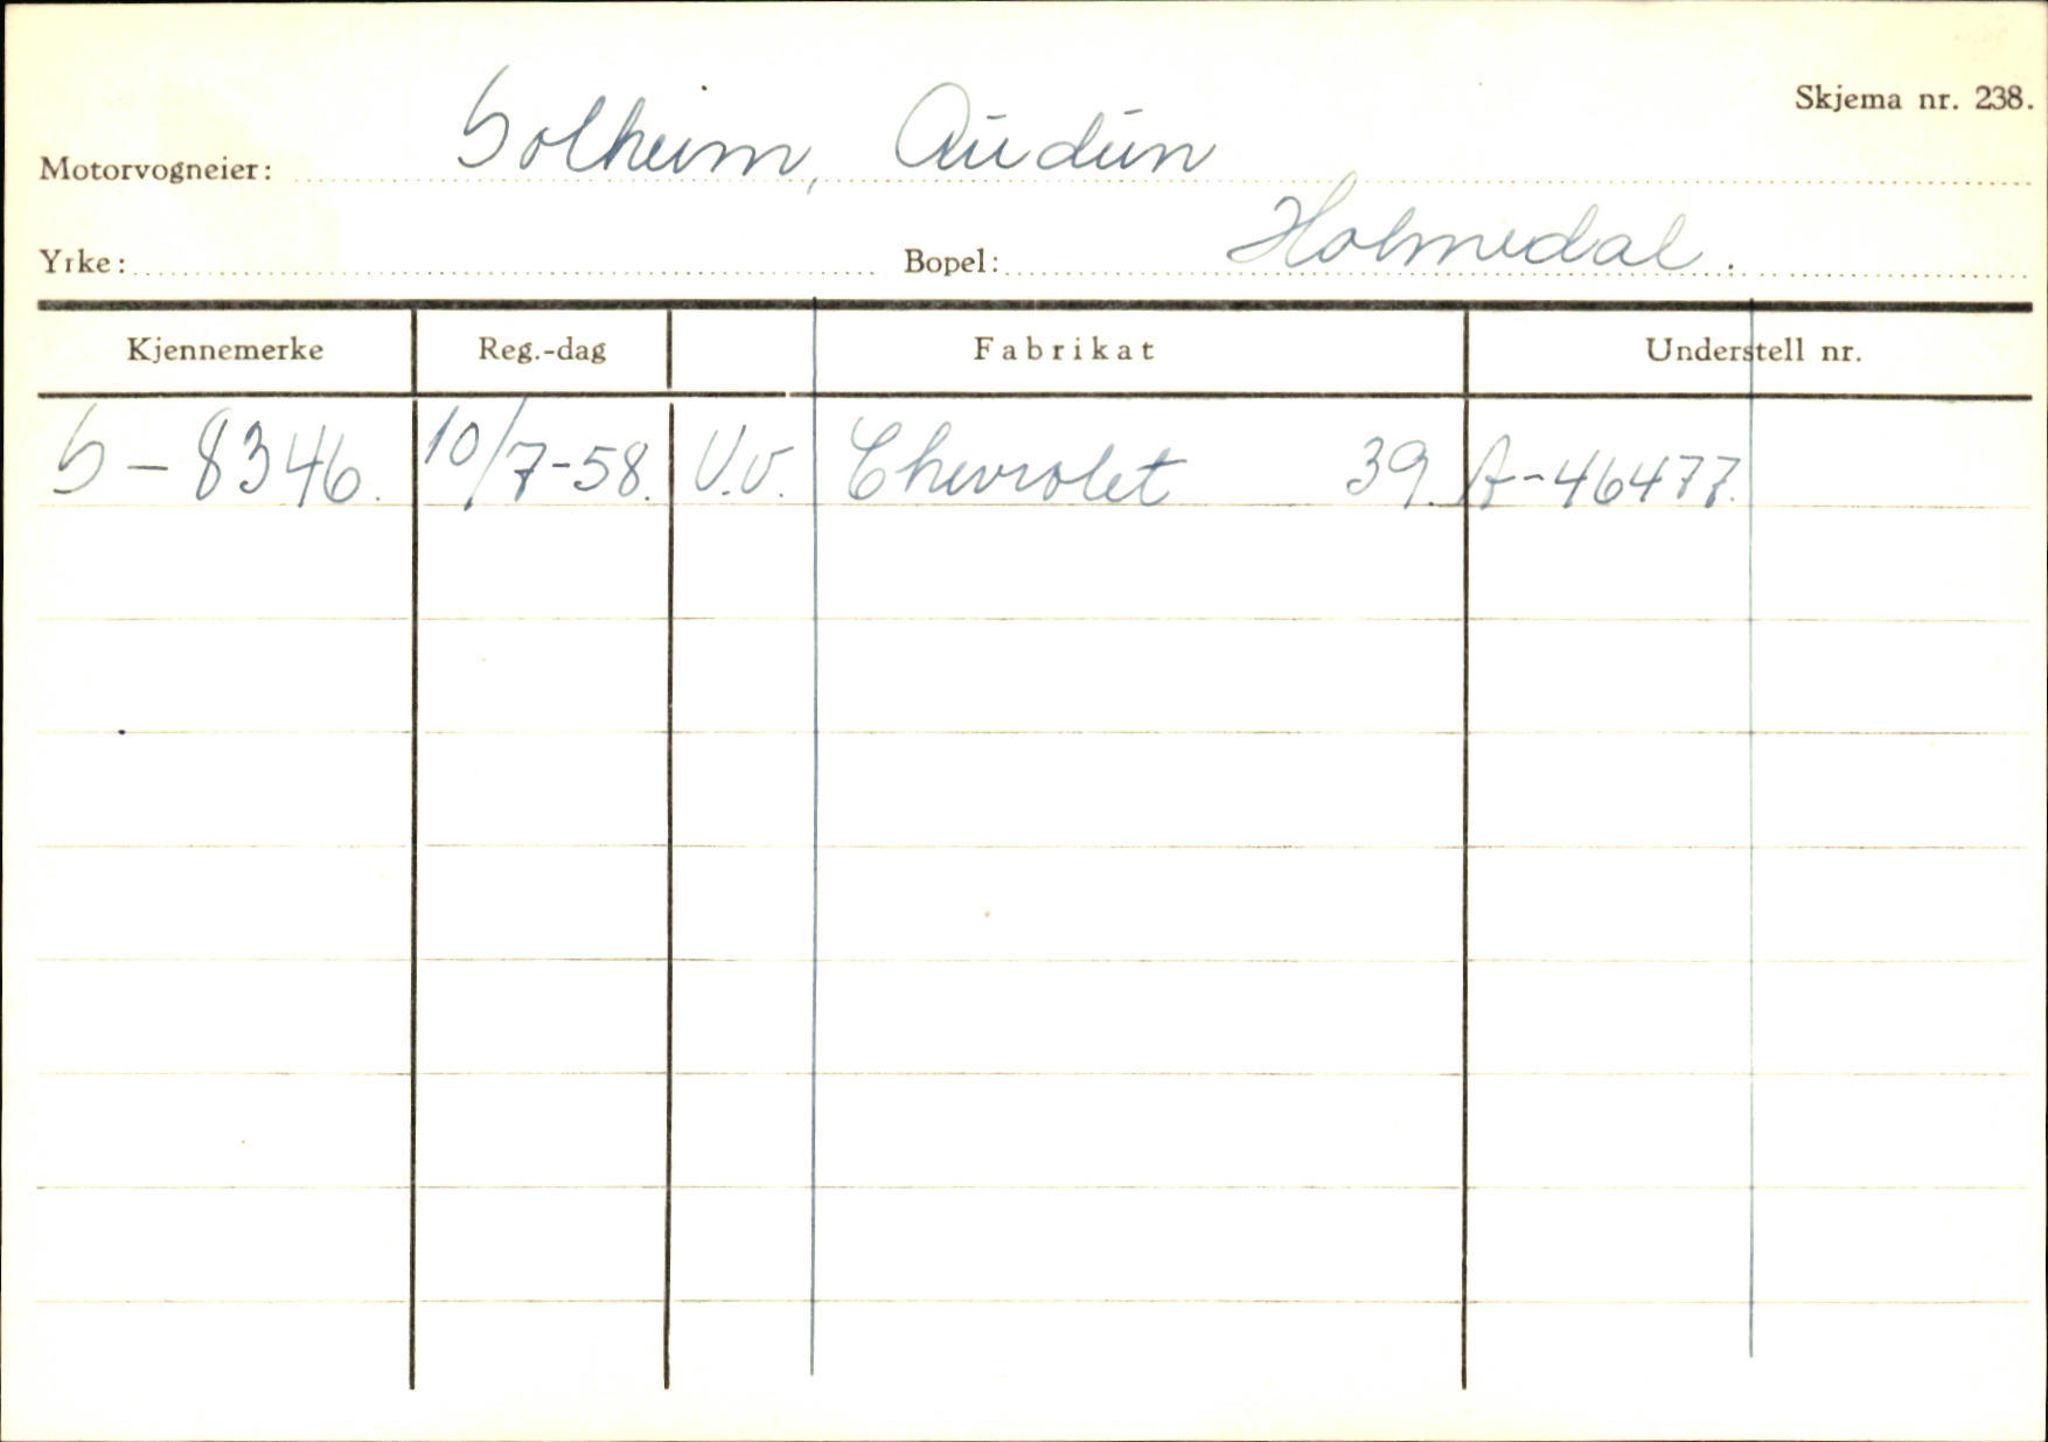 Skjema nr. 238.
Motorvogneier: Solheim, Audun
Yrke: Bopel: Holmedal.
Kjennemerke Reg.-dag Fabrikat Understell nr.
S-8346. 10/7-58. V.v. Chevrolet 39. A-46477.